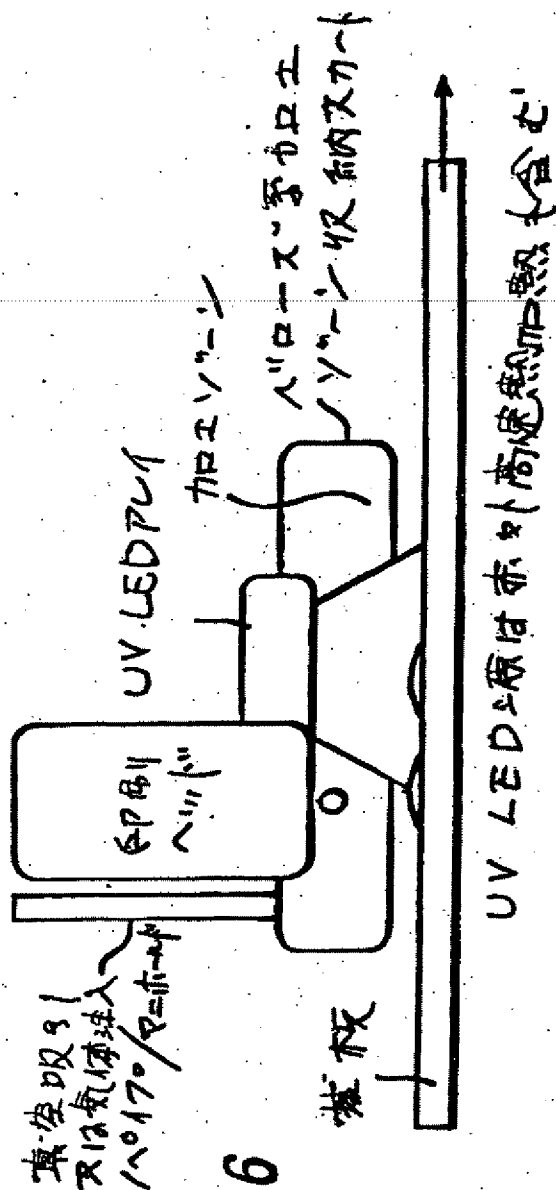 真空吸引
又は気体注入
パイプ/マニホールド
印刷り
ヘッド
UV.LEDアレイ
加工ゾーン
ベローズ等加工
ゾーン収納スカート
基板
UV LED光源は赤外高速熱加熱も含む
6